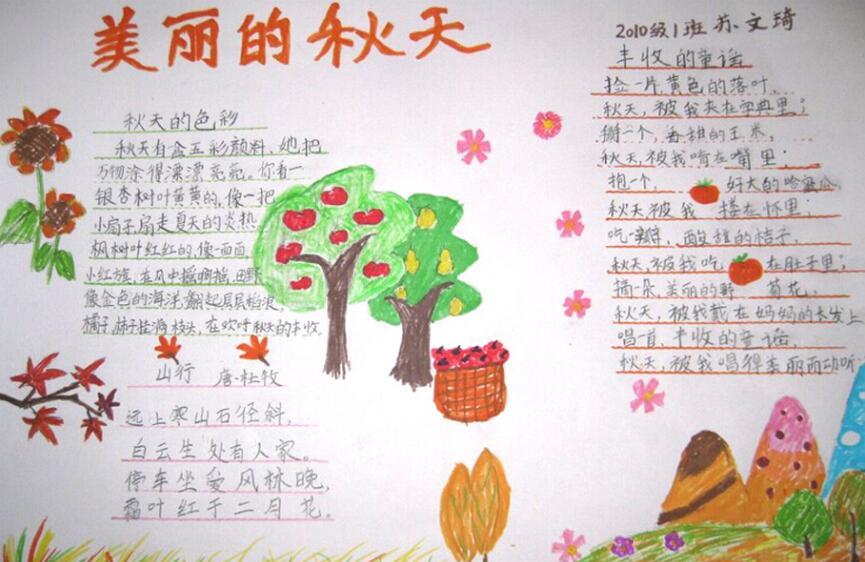 美丽的秋天
秋天的色彩
秋天有盒五彩颜料，她把
万物涂得漂漂亮亮。你看——
银杏树叶黄黄的，像一把
小扇子，扇走夏天的炎热
枫树叶红红的，像一面面
小红旗，在风中摇啊摇，田野
像金色的海洋，翻起层层稻浪。
橘子，柿子挂满枝头，在欢呼秋天的丰收。
山行 唐·杜牧
远上寒山石径斜，
白云生处有人家。
停车坐爱枫林晚，
霜叶红于二月花。
2010级1班苏文琦
丰收的童谣
捡一片，黄色的落叶，
秋天，被我夹在字典里；
掰一个，香甜的玉米，
秋天，被我啃在嘴里；
抱一个，好大的哈蜜瓜
秋天被我搂在怀里；
吃一瓣，酸甜的桔子，
秋天，被我吃在肚子里；
摘一朵，美丽的野菊花，
秋天，被我戴在妈妈的长发上
唱一首，丰收的童谣，
秋天，被我唱得美丽而动听